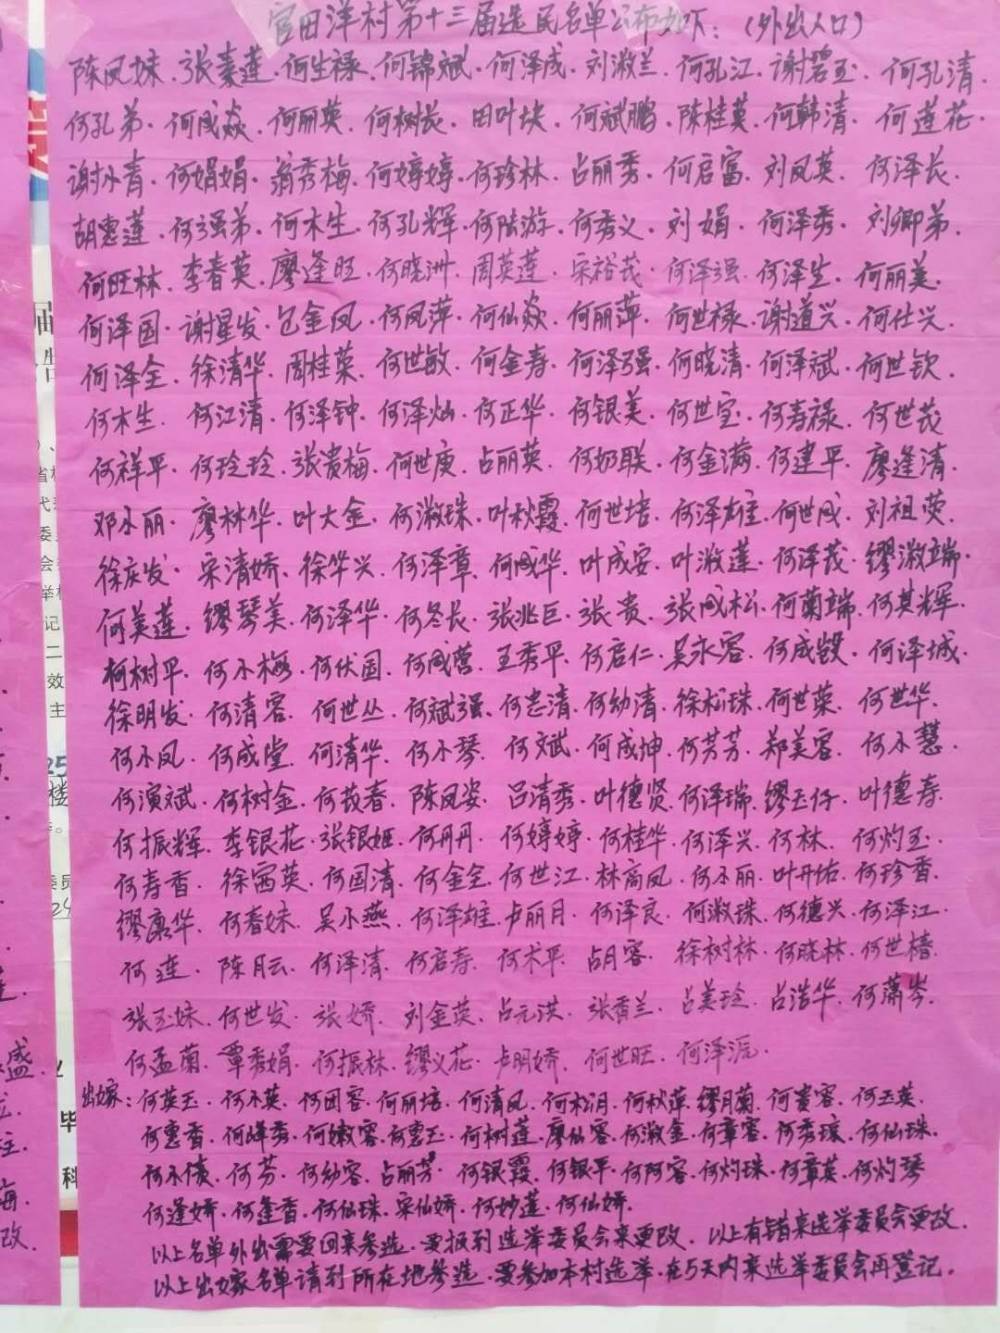 官田洋村第十三届选民名单公布如下：（外出人口）
陈凤妹.张秦莲.何生禄.何锦斌.何泽成.刘淑兰.何孔江.谢碧玉.何孔清
何孔弟.何成焱.何丽英.何树长.田叶埃.何斌鹏.陈桂英.何韩清.何莲花.
谢小青.何娟娟.翁秀梅.何婷婷.何珍林.占丽秀.何启富.刘凤英.何泽长.
胡惠莲.何强弟.何木生.何孔辉.何陆游.何秀义.刘娟.何泽秀.刘卿弟.
何旺林.李春英.廖逢旺.何晓洲.周英莲.宋裕茂.何泽强.何泽生.何丽美.
何泽国.谢星发.包金凤.何凤萍.何仙焱.何丽萍.何世禄.谢道兴.何仕兴.
何泽全.徐清华.周桂荣.何世敏.何金寿.何泽强.何晓清.何泽斌.何世钦.
何木生.何江清.何泽钟.何泽灿.何正华.何银美.何世宝.何寿禄.何世茂
何祥平.何玲玲.张贵梅.何世庚.占丽英.何奶联.何金满.何建平.廖逢清.
邓小丽.廖林华.叶大金.何淑珠.叶秋霞.何世培.何泽雄.何世成.刘祖荣.
徐庆发.宋清娇.徐华兴.何泽章.何成华.叶成安.叶淑莲.何泽茂.缪淑端.
何美莲.缪琴美.何泽华.何冬长.张兆巨.张贵.张成松.何菊端.何其辉.
柯树平.何小梅.何伏国.何成营.王秀平.何启仁.吴永容.何成毅.何泽城.
徐明发.何清容.何世丛.何斌强.何志清.何幼清.徐松珠.何世荣.何世华.
何小凤.何成堂.何清华.何小琴.何文斌.何成坤.何芳芳.郑美容.何小慧.
何演斌.何树金.何茂春.陈凤姿.吕清秀.叶德贤.何泽瑞.缪玉仔.叶德寿.
何振辉.李银花.张银姬.何丹丹.何婷婷.何桂华.何泽兴.何林.何灼玉.
何寿香.徐茜英.何国清.何金全.何世江.林高凤.何小丽.叶丹姤.何珍香.
缪康华.何春妹.吴小燕.何泽雄.卢丽月.何泽良.何淑珠.何德兴.何泽江.
何连.陈月云.何泽清.何启寿.何术平.占月容.徐树林.何晓林.何世椿.
张玉妹.何世发.张娇.刘金英.占元洪.张香兰.占美玲.占浩华.何蒲岑.
何孟菊.覃秀娟.何振林.缪义花.卢明娇.何世旺.何泽汇.
出嫁：何英玉.何小英.何团容.何丽培.何清凤.何松月.何秋萍.缪月菊.何贵容.何玉英.
何惠香.何峰秀.何嫩容.何惠玉.何树莲.廖仙容.何淑金.何章容.何秀琼.何仙珠.
何小倩.何芬.何纱容.占丽芳.何银霞.何银平.何阿容.何灼珠.何章英.何灼琴
何逢娇.何逢香.何仙珠.宋仙娇.何妙莲.何仙娇.
以上名单外出需要回来参选.要报到选举委员会来更改.以上有错来选举委员会更改.
以上出嫁名单请到所在地参选.要参加本村选举.在5天内来选举委员会再登记.